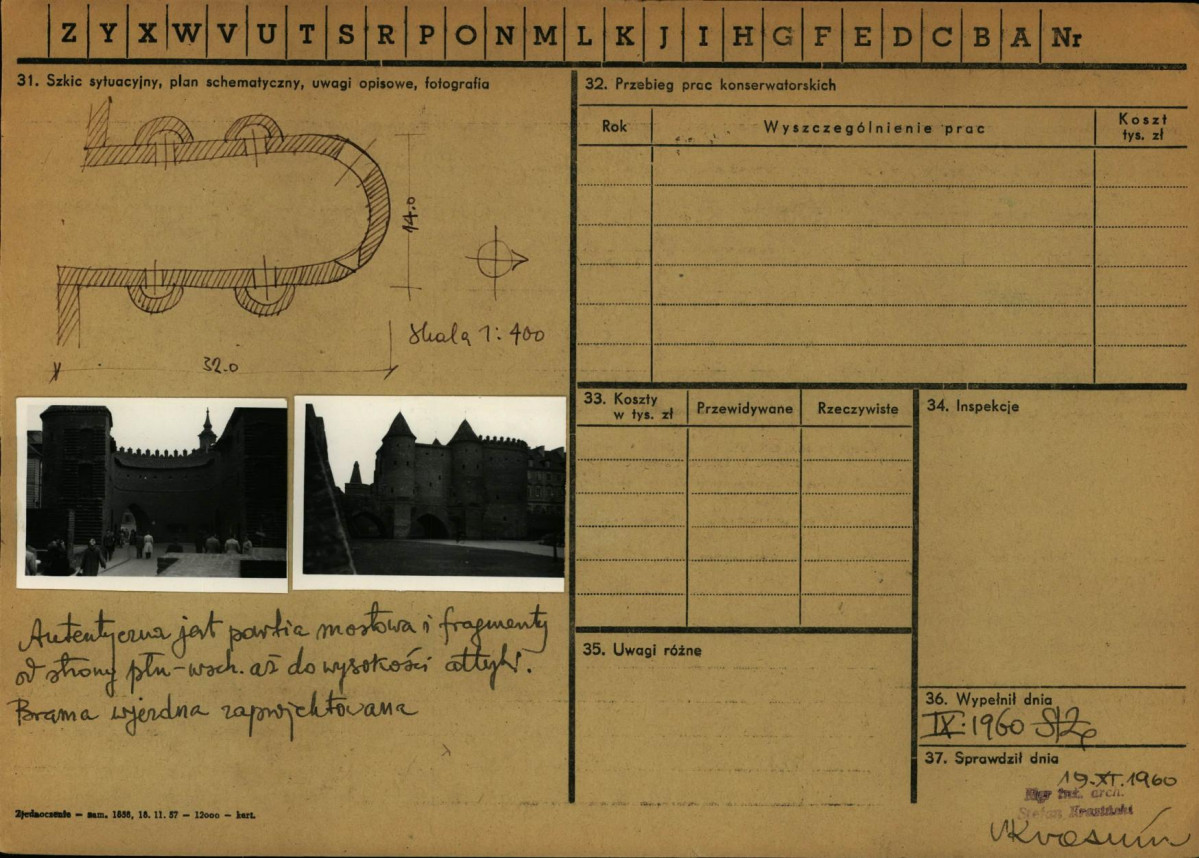 Z Y X W V U T S R P O N M L K J I H G F E D C B A Nr
31. Szkic sytuacyjny, plan schematyczny, uwagi opisowe, fotografia
14.0
Skala 1:400
32.0
Autentyczna jest partia mostowa i fragmenty
od strony płn-wsch. aż do wysokości attyki.
Brama wjezdna zaprojektowana
Zjednoczenie — zam. 1656, 16. 11. 57 — 12000 — kart.
32. Przebieg prac konserwatorskich
Rok
Wyszczególnienie prac
Koszt
tys. zł
33. Koszty
w tys. zł
Przewidywane
Rzeczywiste
34. Inspekcje
35. Uwagi różne
36. Wypełnił dnia
IX.1960
37. Sprawdził dnia
19.XI.1960
Mgr inż. arch.
Stefan Krasiński